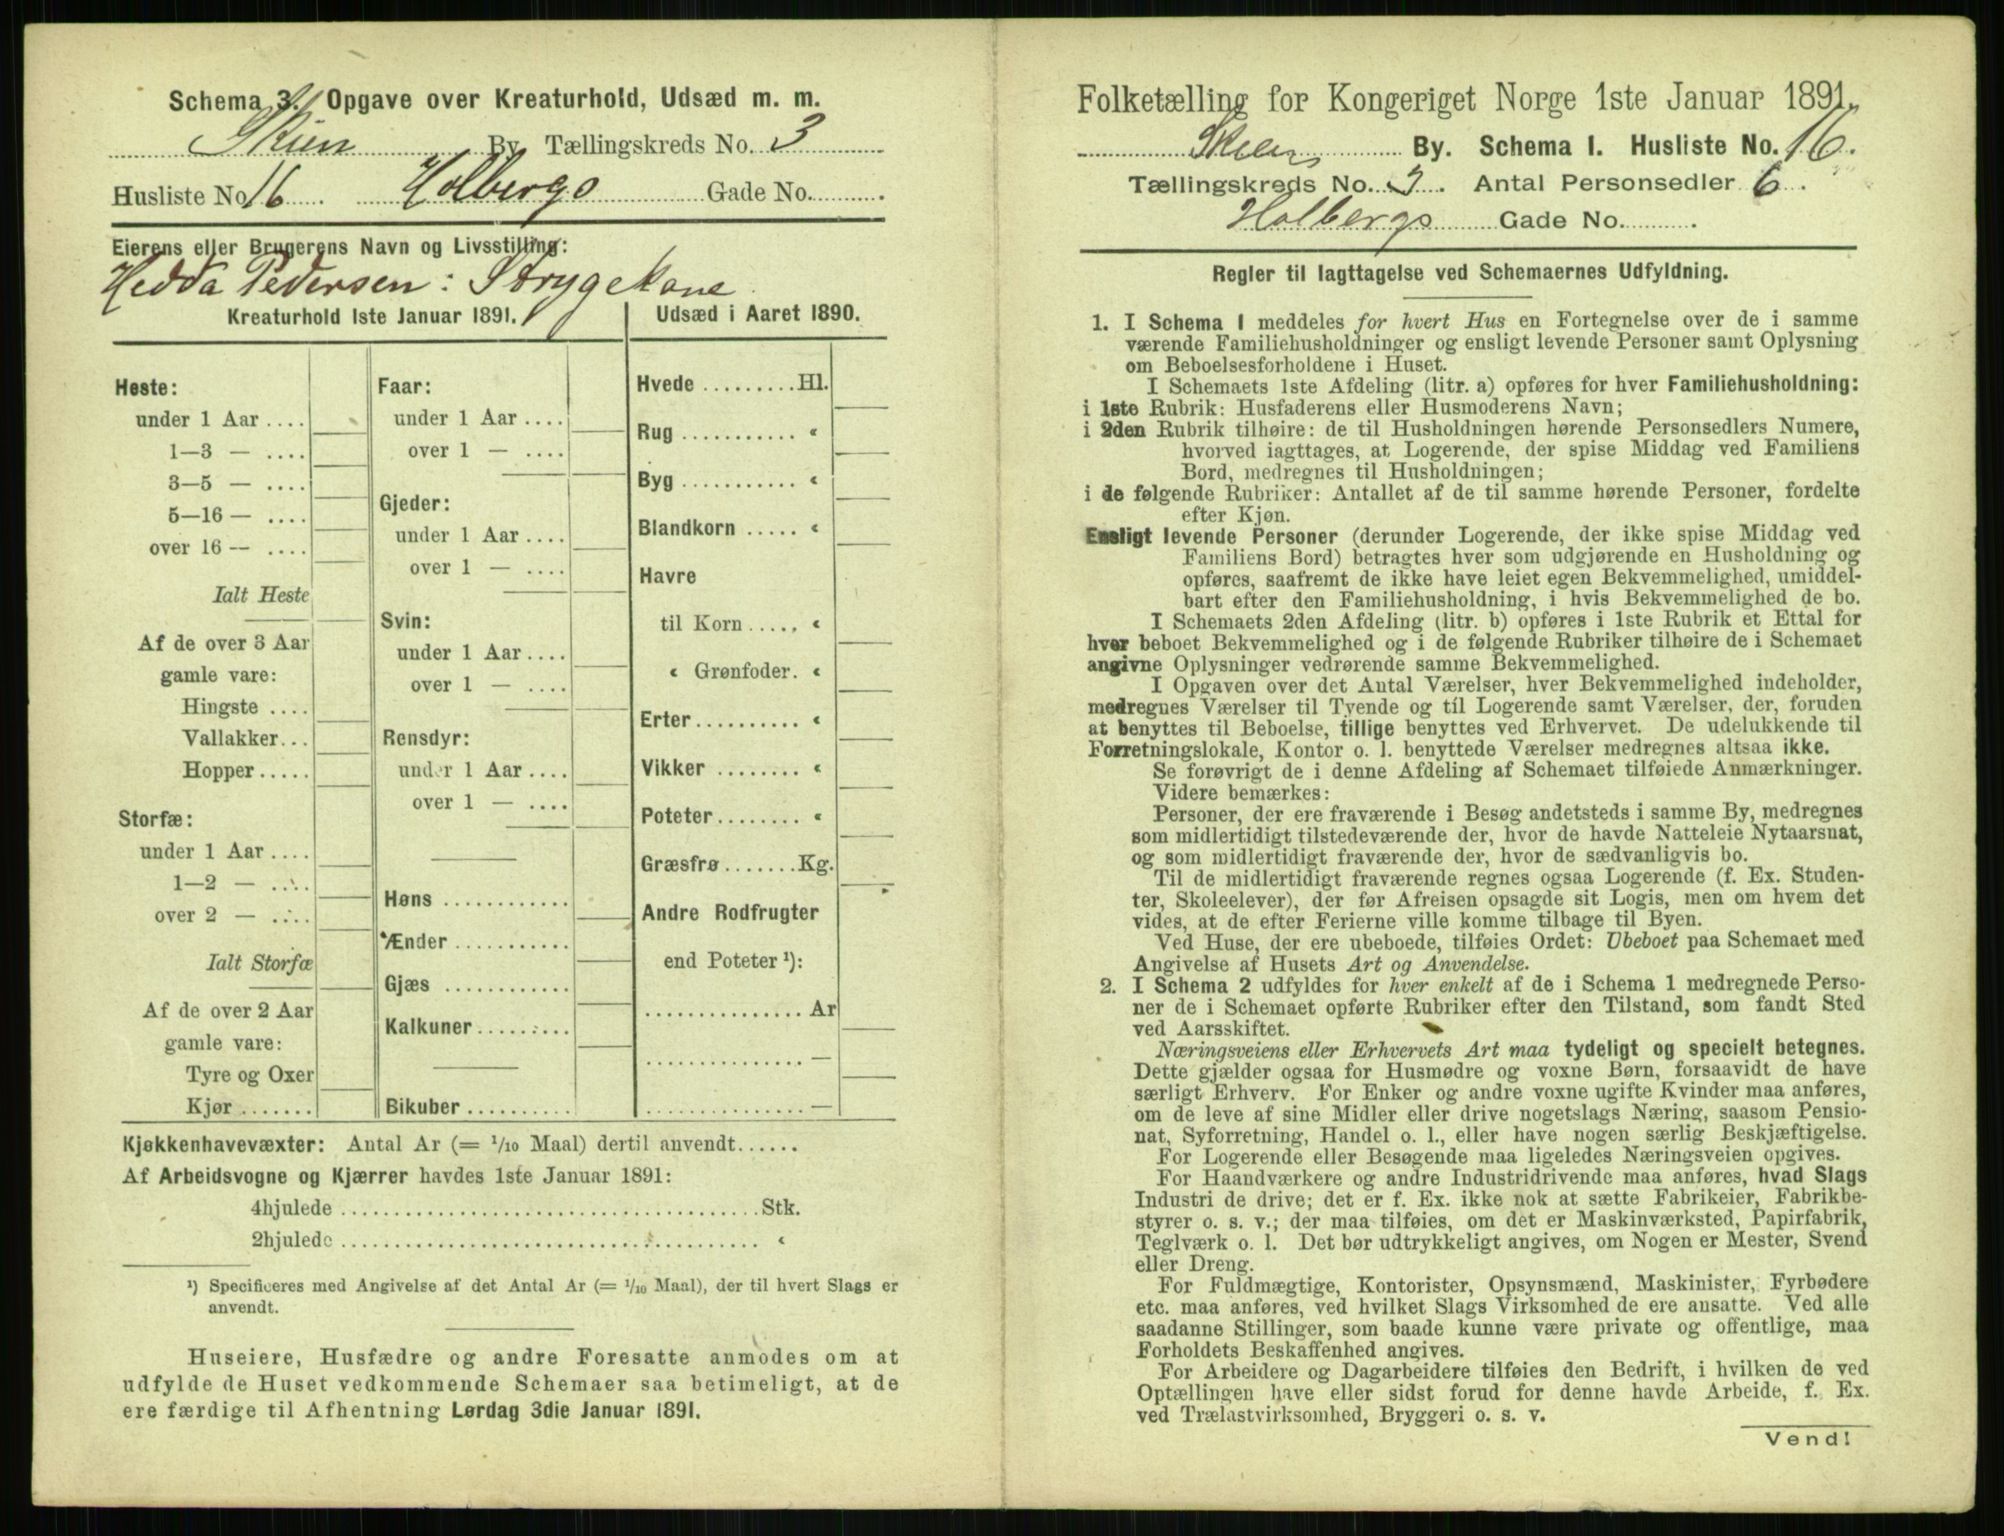 Schema 3. Opgave over Kreaturhold, Udsæd m. m.
Skien By Tællingskreds No. 3
Husliste No 16 Holbergs Gade No.
Eierens eller Brugerens Navn og Livsstilling:
Hedda Pedersen: Strygekone
Kreaturhold 1ste Januar 1891.
Heste:
under 1 Aar ....
1—3 — ....
3—5 — ....
5—16 — ....
over 16 — ....
Ialt Heste
Af de over 3 Aar
gamle vare:
Hingste ....
Vallakker...
Hopper.....
Storfæ:
under 1 Aar ....
1—2 — ....
over 2 — ....
Ialt Storfæ
Af de over 2 Aar
gamle vare:
Tyre og Oxer
Kjør.......
Faar:
under 1 Aar ....
over 1 — ....
Gjeder:
under 1 Aar ....
over 1 — ....
Svin:
under 1 Aar ....
over 1 — ....
Rensdyr:
under 1 Aar ....
over 1 — ....
Høns ............
Ænder ...........
Gjæs ............
Kalkuner.........
Bikuber..........
Udsæd i Aaret 1890.
Hvede .........Hl.
Rug ........... «
Byg ........... «
Blandkorn ..... «
Havre
til Korn ..... «
« Grønfoder. «
Erter.......... «
Vikker ........ «
Poteter........ «
Græsfrø .......Kg.
Andre Rodfrugter
end Poteter ¹):
............... Ar
............... —
............... —
Kjøkkenhavevæxter: Antal Ar (= 1/10 Maal) dertil anvendt......
Af Arbeidsvogne og Kjærrer havdes 1ste Januar 1891:
4hjulede .....................................Stk.
2hjulede ..................................... «
¹) Specificeres med Angivelse af det Antal Ar (= 1/10 Maal), der til hvert Slags er
anvendt.
Huseiere, Husfædre og andre Foresatte anmodes om at
udfylde de Huset vedkommende Schemaer saa betimeligt, at de
ere færdige til Afhentning Lørdag 3die Januar 1891.
Folketælling for Kongeriget Norge 1ste Januar 1891.
Skien By. Schema 1. Husliste No. 16.
Tællingskreds No. 3. Antal Personsedler 6.
Holbergs Gade No.
Regler til Iagttagelse ved Schemaernes Udfyldning.
1. I Schema 1 meddeles for hvert Hus en Fortegnelse over de i samme
værende Familiehusholdninger og ensligt levende Personer samt Oplysning
om Beboelsesforholdene i Huset.
I Schemaets 1ste Afdeling (litr. a) opføres for hver Familiehusholdning:
i 1ste Rubrik: Husfaderens eller Husmoderens Navn;
i 2den Rubrik tilhøire: de til Husholdningen hørende Personsedlers Numere,
hvorved iagttages, at Logerende, der spise Middag ved Familiens
Bord, medregnes til Husholdningen;
i de følgende Rubriker: Antallet af de til samme hørende Personer, fordelte
efter Kjøn.
Ensligt levende Personer (derunder Logerende, der ikke spise Middag ved
Familiens Bord) betragtes hver som udgjørende en Husholdning og
opføres, saafremt de ikke have leiet egen Bekvemmelighed, umiddel-
bart efter den Familiehusholdning, i hvis Bekvemmelighed de bo.
I Schemaets 2den Afdeling (litr. b) opføres i 1ste Rubrik et Ettal for
hver beboet Bekvemmelighed og i de følgende Rubriker tilhøire de i Schemaet
angivne Oplysninger vedrørende samme Bekvemmelighed.
I Opgaven over det Antal Værelser, hver Bekvemmelighed indeholder,
medregnes Værelser til Tyende og til Logerende samt Værelser, der, foruden
at benyttes til Beboelse, tillige benyttes ved Erhvervet. De udelukkende til
Forretningslokale, Kontor o. l. benyttede Værelser medregnes altsaa ikke.
Se forøvrigt de i denne Afdeling af Schemaet tilføiede Anmærkninger.
Videre bemærkes:
Personer, der ere fraværende i Besøg andetsteds i samme By, medregnes
som midlertidigt tilstedeværende der, hvor de havde Natteleie Nytaarsnat,
og som midlertidigt fraværende der, hvor de sædvanligvis bo.
Til de midlertidigt fraværende regnes ogsaa Logerende (f. Ex. Studen-
ter, Skoleelever), der før Afreisen opsagde sit Logis, men om hvem det
vides, at de efter Ferierne ville komme tilbage til Byen.
Ved Huse, der ere ubeboede, tilføies Ordet: Ubeboet paa Schemaet med
Angivelse af Husets Art og Anvendelse.
2. I Schema 2 udfyldes for hver enkelt af de i Schema 1 medregnede Perso-
ner de i Schemaet opførte Rubriker efter den Tilstand, som fandt Sted
ved Aarsskiftet.
Næringsveiens eller Erhvervets Art maa tydeligt og specielt betegnes.
Dette gjælder ogsaa for Husmødre og voxne Børn, forsaavidt de have
særligt Erhverv. For Enker og andre voxne ugifte Kvinder maa anføres,
om de leve af sine Midler eller drive nogetslags Næring, saasom Pensio-
nat, Syforretning, Handel o. l., eller have nogen særlig Beskjæftigelse.
For Logerende eller Besøgende maa ligeledes Næringsveien opgives.
For Haandværkere og andre Industridrivende maa anføres, hvad Slags
Industri de drive; det er f. Ex. ikke nok at sætte Fabrikeier, Fabrikbe-
styrer o. s. v.; der maa tilføies, om det er Maskinværksted, Papirfabrik,
Teglværk o. l. Det bør udtrykkeligt angives, om Nogen er Mester, Svend
eller Dreng.
For Fuldmægtige, Kontorister, Opsynsmænd, Maskinister, Fyrbødere
etc. maa anføres, ved hvilket Slags Virksomhed de ere ansatte. Ved alle
saadanne Stillinger, som baade kunne være private og offentlige, maa
Forholdets Beskaffenhed angives.
For Arbeidere og Dagarbeidere tilføies den Bedrift, i hvilken de ved
Optællingen have eller sidst forud for denne havde Arbeide, f. Ex.
ved Trælastvirksomhed, Bryggeri o. s. v.
Vend!